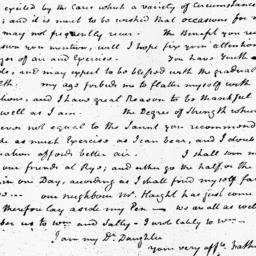 excited by the Cares which a variety of circumstance
; and it is much to be wished that occasions for
may not frequently recur. The Benefit you re
you mention, will I hope fix your attention
of air and Exercise. You have Youth
, and may expect to be blessed with the gradual
. my age forbids me to flatter myself with
, and I have great Reason to be thankful
well as I am. The Degree of Strength which
ever not equal to the Jaunt you recommend
as much Exercise as I can bear, and I doubt
affords better air. I shall
our friends at Rye; and either go the half or the
in one Day, according as I shall find myself
our neighbour Mr. Haight has just come
therefore lay aside my Pen — we are all well
us to Wm and Sally — I
I am my Dr. Daughter
your very affte. Fath